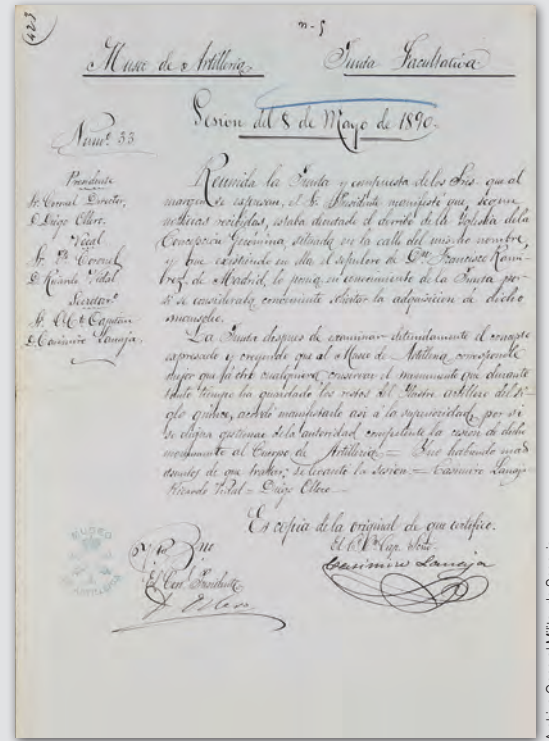 (423)
n-5
Museo de Artillería.
Junta Facultativa
Sesion del 8 de Mayo de 1890.
Num.º 33
Presidente
Sr. Coronel Director,
D. Diego Ollero.
Vocal
Sr. Tte. Coronel
D. Ricardo Vidal
Secretarº
Sr. C.te Capitan
D. Casimiro Lanaja.
Reunida la Junta y compuesta de los Sres. que al
margen se espresan, el Sr. Presidente manifestó que, segun
noticias recibidas, estaba decretado el derribo de la Iglesia de la
Concepcion Gerónima, situada en la calle del mismo nombre,
y que existiendo en ella el sepulcro de Dn. Francisco Rami-
rez de Madrid, lo ponia en conocimiento de la Junta por
si se consideraba conveniente solicitar la adquisicion de dicho
mausoleo.
La Junta despues de examinar detenidamente el concepto
espresado y creyendo que al Museo de Artillería corresponde
mejor que á otro cualquiera, conservar el monumento que durante
tanto tiempo ha guardado los restos del Ilustre artillero del si-
glo quince, acordó manifestarlo asi á la superioridad, por si
se digna gestionar de la autoridad competente la cesion de dicho
monumento al Cuerpo de Artillería = Y no habiendo mas
asuntos de que tratar, se levantó la sesion = Casimiro Lanaja
Ricardo Vidal = Diego Ollero
Es copia de la original de que certifico.
El C.te Cap. Srio.
Casimiro Lanaja
Vº Bno
El Cor. Presidente
D. Ollero
MUSEO
ARTILLERIA